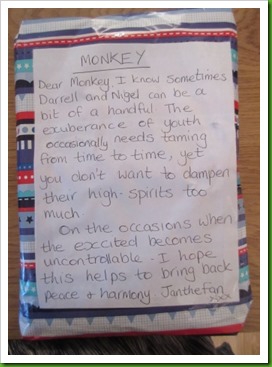 MONKEY
Dear Monkey I know sometimes
Darrell and Nigel can be a
bit of a handful. The
exuberance of youth
occasionally needs taming
from time to time, yet
you don't want to dampen
their high-spirits too
much
On the occasions when
the excited becomes
uncontrollable - I hope
this helps to bring back
peace & harmony. Janthefan
xxx